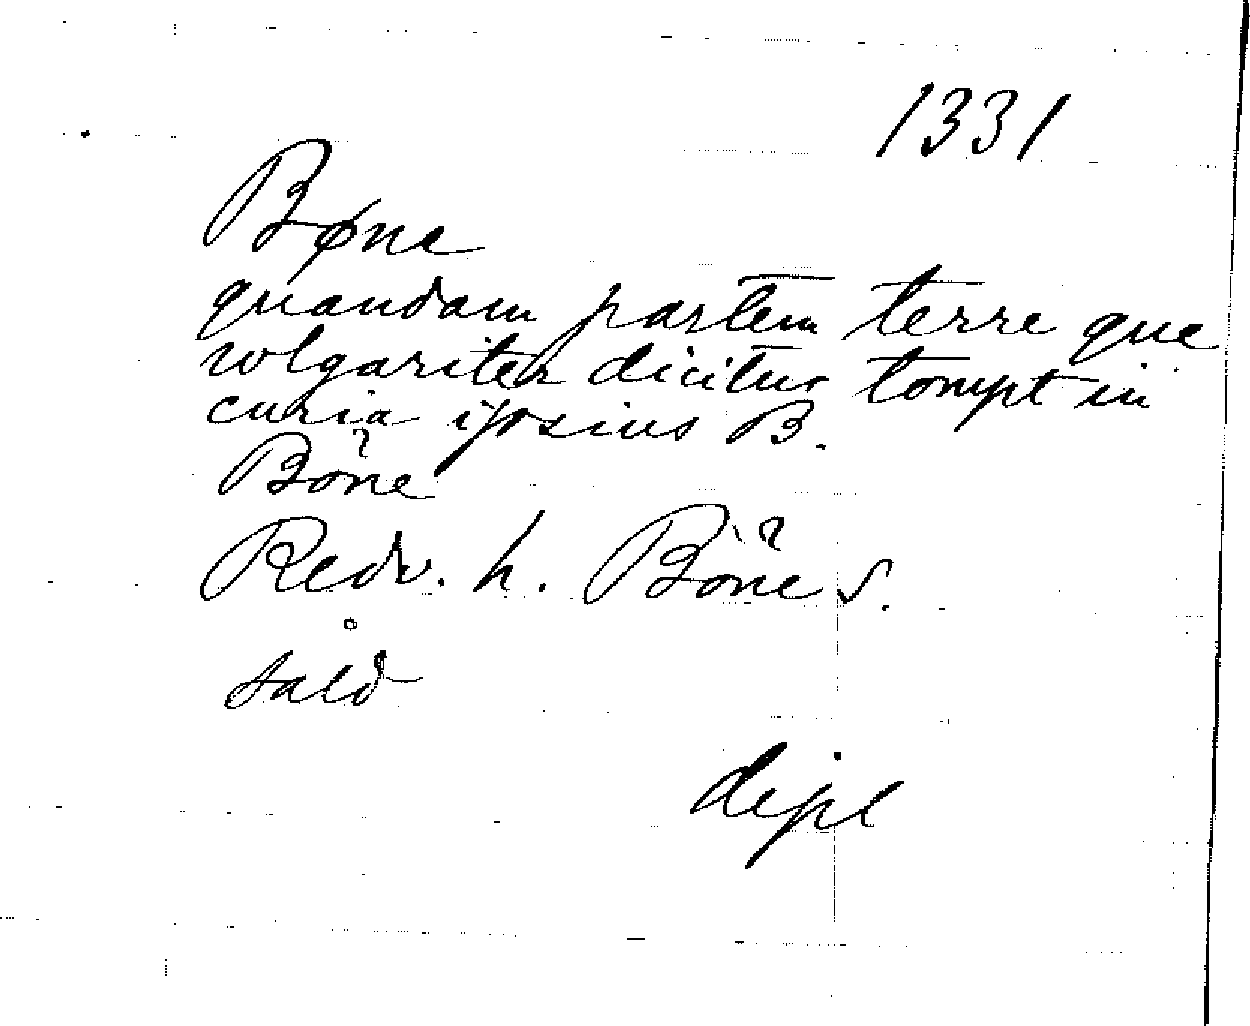 1331
Bøne
quandam partem terre que
wolgariter dicitur tompt in
curia ipsius B.
Böne
Redv. h. Böne s.
såld
dipl